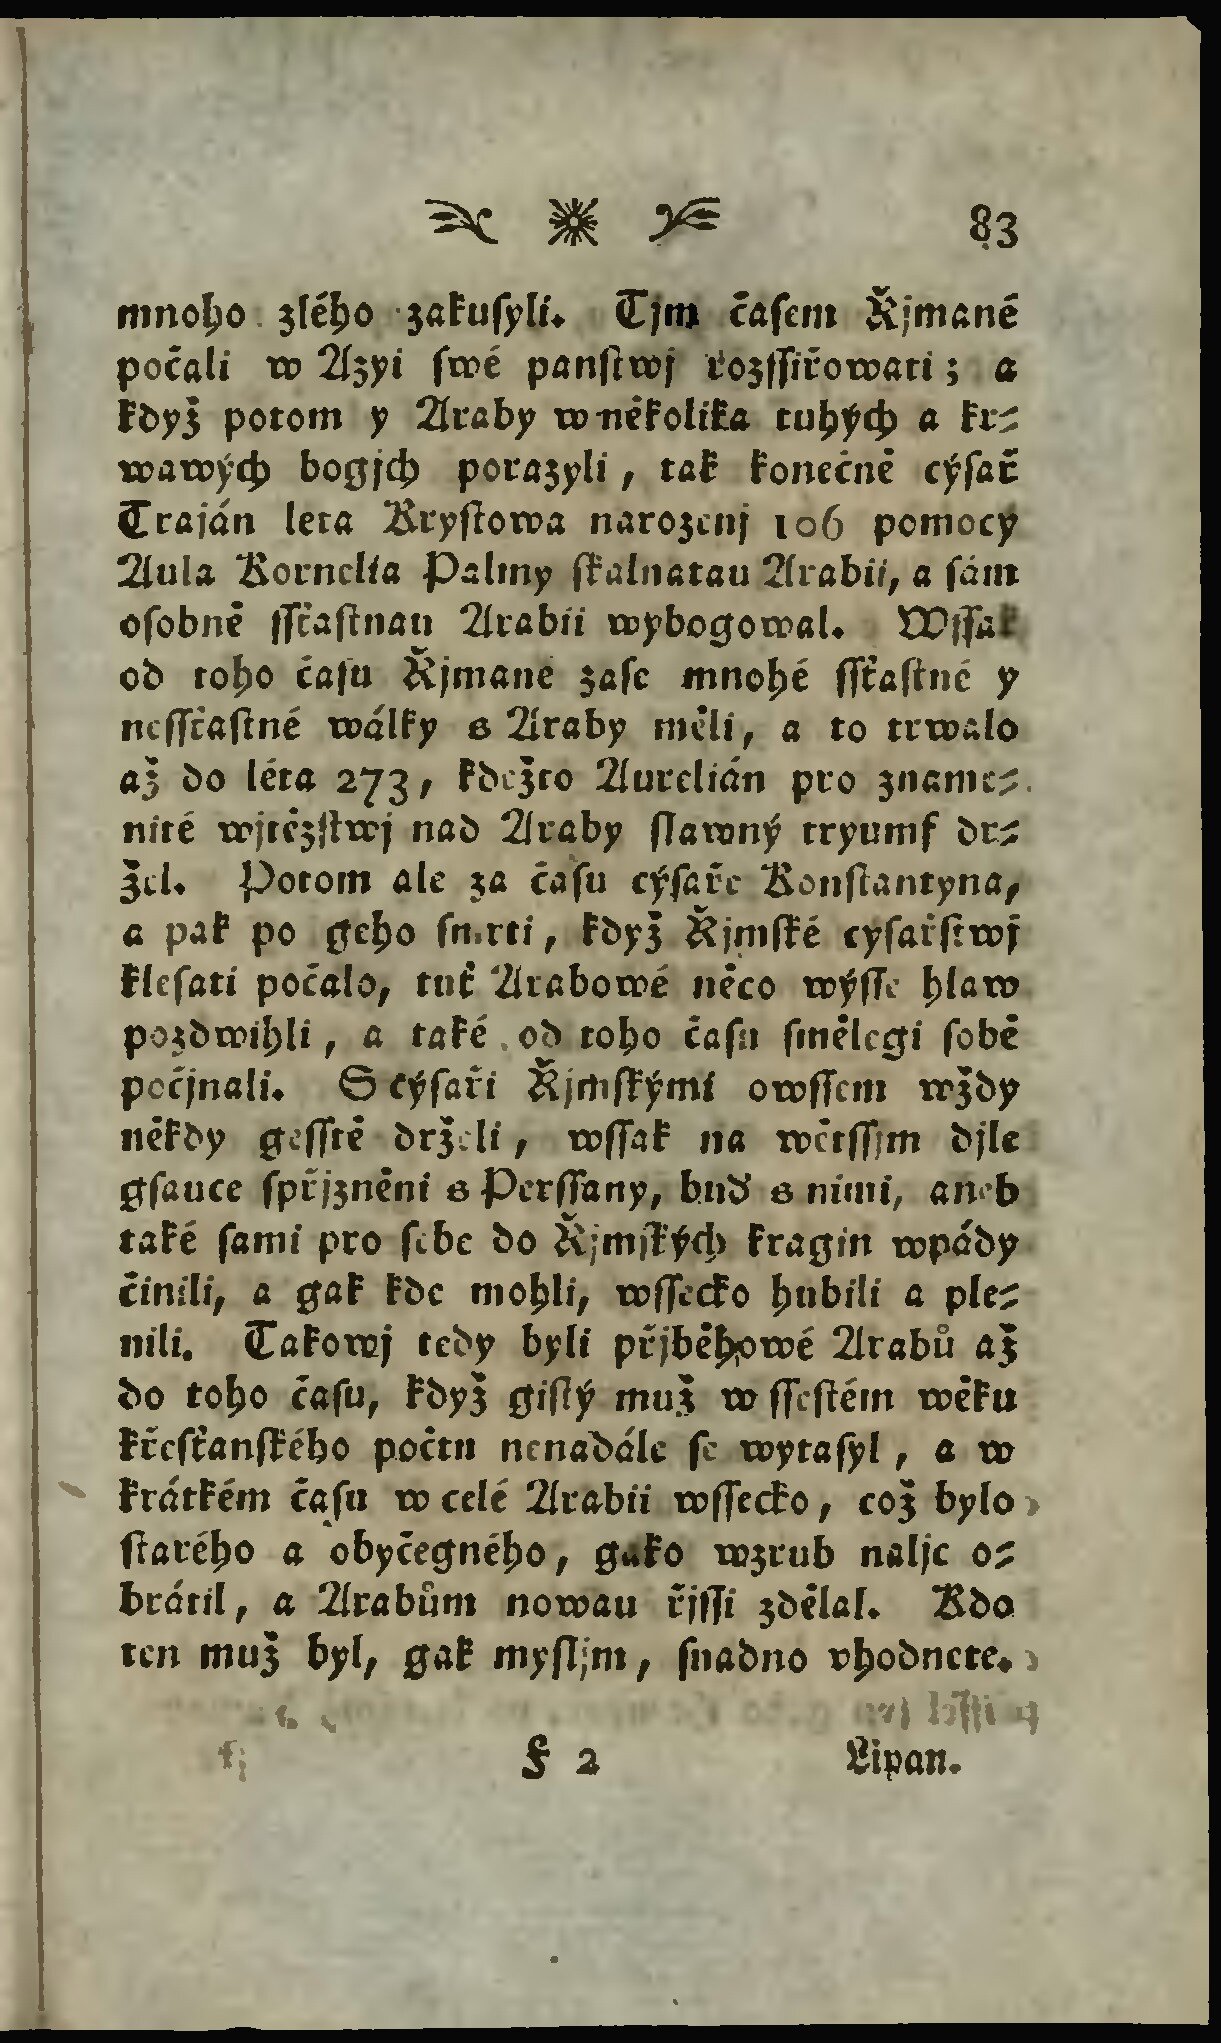 83
mnoho zlého zakuſyli. Tjm čaſem Řjmané
počali w Azyi ſwé panſtwj rozſſiřowati; a
když potom y Araby w několika tuhých a kr⸗
wawých bogjch porazyli, tak konečně cýſař
Traján leta Kryſtowa narozenj 106 pomocy
Aula Kornelia Palmy ſkalnatau Arabii, a ſám
oſobně ſſťaſtnau Arabii wybogowal. Wſſak
od toho čaſu Řjmané zaſe mnohé ſſťaſtné y
neſſťaſtné wálky s Araby měli, a to trwalo
až do léta 273, kdežto Aurelián pro zname⸗
nité wjtězſtwj nad Araby ſlawný tryumf dr⸗
žel. Potom ale za čaſu cýſaře Konſtantyna,
a pak po geho ſmrti, když Řjmſké cyſařſtwj
kleſati počalo, tuť Arabowé něco wýſſe hlaw
pozdwihli, a také od toho čaſu ſmělegi ſobě
počjnali. S cýſaři Řjmſkými owſſem wždy
někdy geſſtě drželi, wſſak na wětſſjm djle
gſauce ſpřjzněni s Perſſany, buď s nimi, aneb
také ſami pro ſebe do Řjmſkých kragin wpády
činili, a gak kde mohli, wſſecko hubili a ple⸗
nili. Takowj tedy byli přjběhowé Arabů až
do toho čaſu, když giſtý muž w ſſeſtém wěku
křeſťanſkého počtu nenadále ſe wytaſyl, a w
krátkém čaſu w celé Arabii wſſecko, což bylo
ſtarého a obyčegného, gako wzrub naljc o⸗
brátil, a Arabům nowau řjſſi zdělal. Kdo
ten muž byl, gak myſljm, ſnadno vhodnete.
F 2 Lipan.